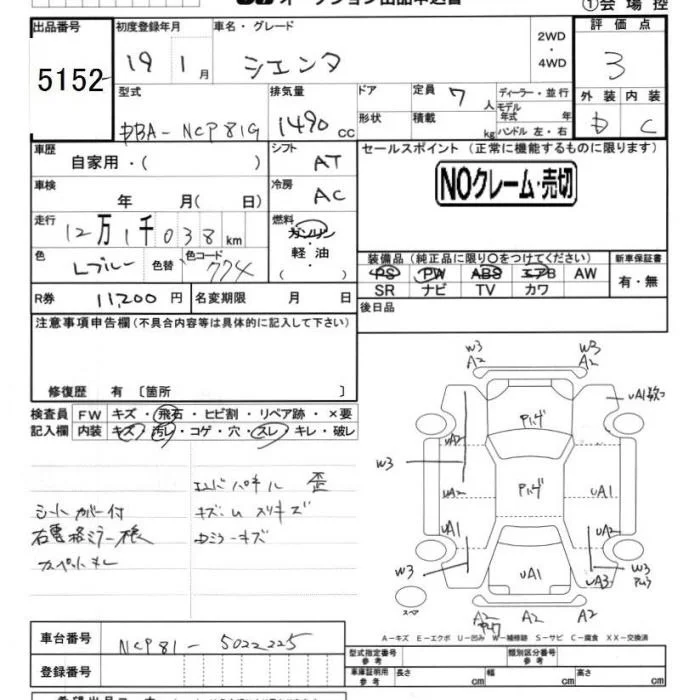 オークション出品申込書
①会場控
出品番号 初度登録年月 車名・グレード 2WD ・ 4WD 評価点
5152 19 1月 シエンタ 3
型式 排気量 ドア 定員 7人 ディーラー・並行 外装 内装
DBA-NCP81G 1490cc 形状 積載 kg モデル年式 年 D C
ハンドル 左・右
車歴 シフト セールスポイント (正常に機能するものに限ります)
自家用・( ) AT
NOクレーム・売切
車検 冷房
年 月(日) AC
走行 燃料
12万1千038km ガソリン
軽油
( )
色 色替 色コード
Lブルー 774
装備品 (純正品に限り〇をつけてください) 新車保証書
PS PW ABS エアB AW 有・無
SR ナビ TV カワ
R券 11,200円 名変期限 月 日
後日品
注意事項申告欄 (不具合内容等は具体的に記入して下さい)
修復歴 有 〔箇所 〕
検査員 FW キズ・飛石・ヒビ割・リペア跡・×要
記入欄 内装 キズ・汚レ・コゲ・穴・スレ・キレ・破レ
シートカバー付
カーペットキレ
エンドパネル 歪
W3 A2 W3 A2
UA1
Pハゲ
UA2
W3
UA2 Pハゲ UA1
UA1 UA2
W3 UA1 UA3 W3
スペア
A2 A2 A2
A-キズ E-エクボ U-凹み W-補修跡 S-サビ C-腐食 XX-交換済
車台番号 NCP81-5022225
型式指定番号 参考 類別区分番号 参考
登録番号
車庫証明用 参考 長さ cm 幅 cm 高さ cm